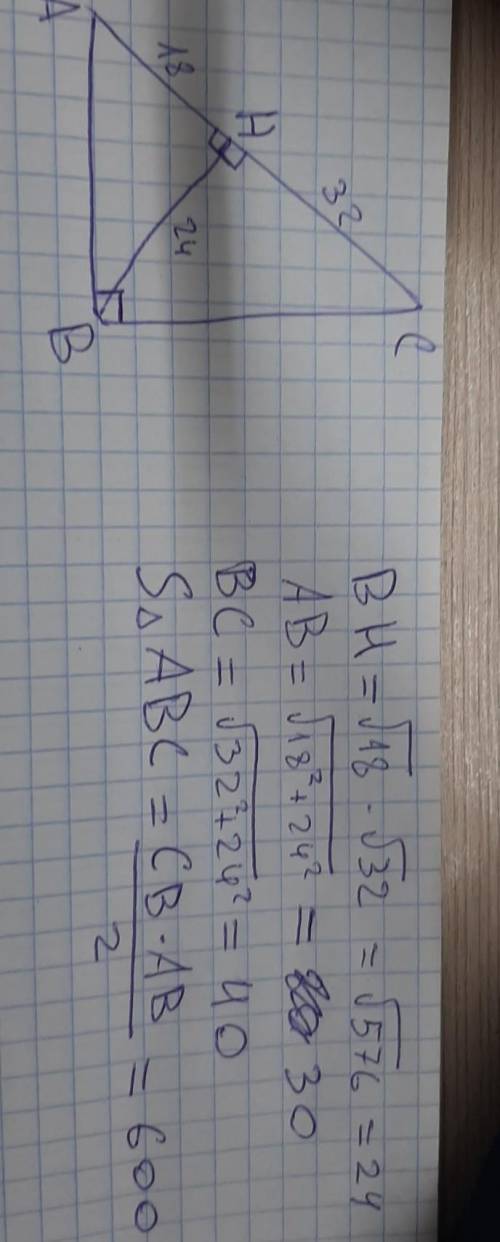 A
18
H
32
C
24
B
BH = √18 · √32 = √576 = 24
AB = √18² + 24² = 30
BC = √32² + 24² = 40
S△ABC = CB · AB / 2 = 600